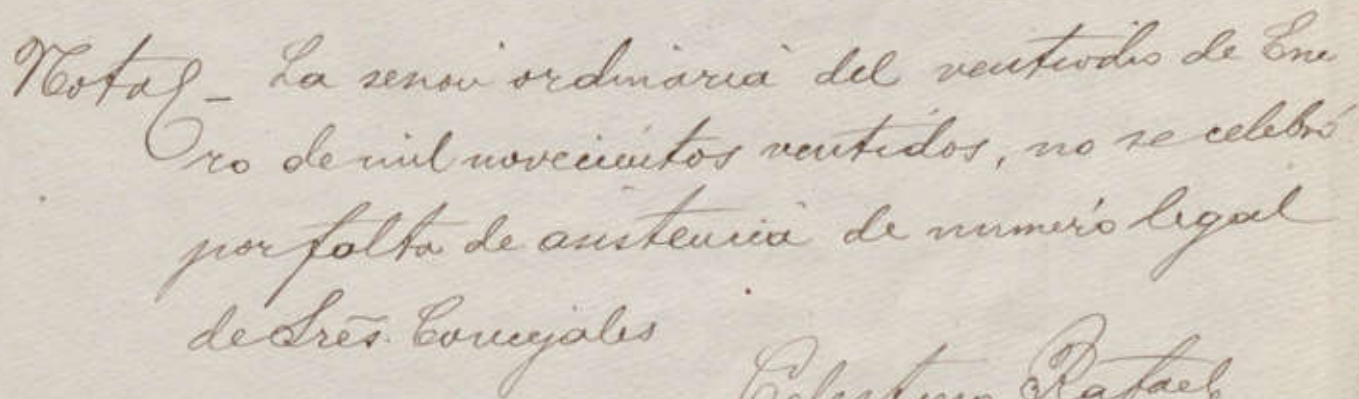 Nota - La sesion ordinaria del ventiodos de Ene
ro de mil novecientos ventidos, no se celebró
por falta de asistencia de numero legal
de Sres. Concejales
Celestino Rafael